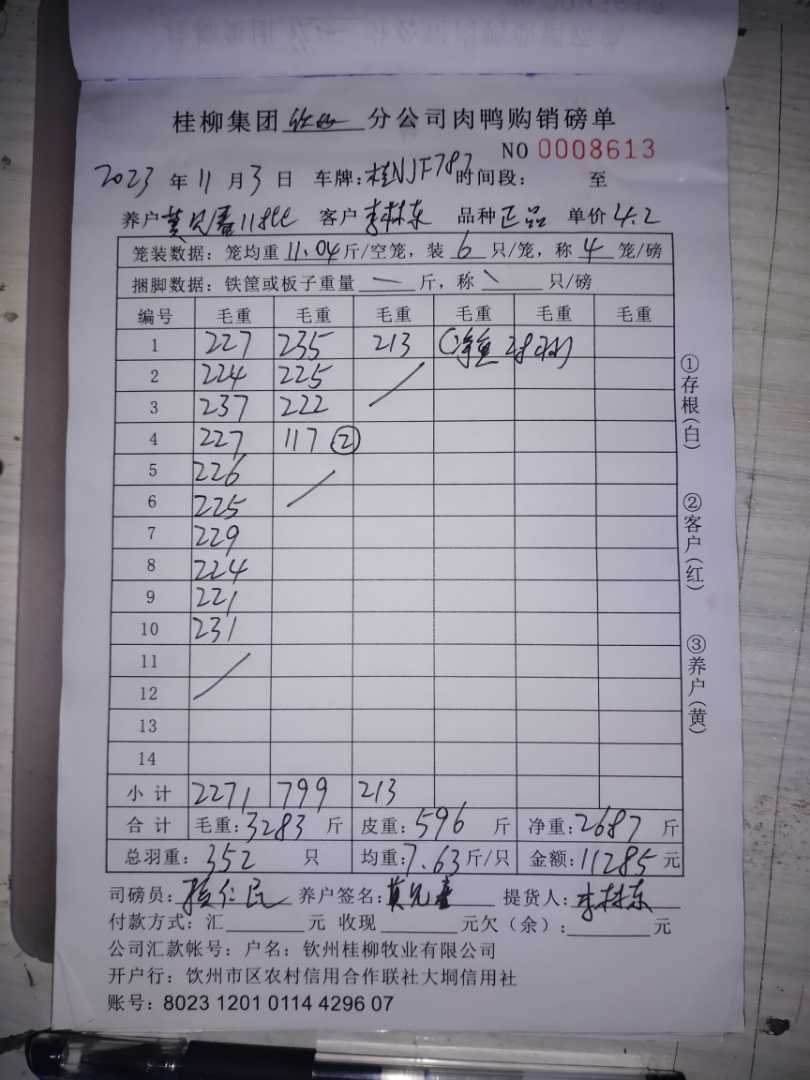 桂柳集团 分公司肉鸭购销磅单
NO 0008613
2023 年 11 月 3 日 车牌：桂NJF787 时间段： 至
养户 客户 李林东 品种 正品 单价 4.2
笼装数据：笼均重 11.04 斤/空笼，装 6 只/笼，称 4 笼/磅
捆脚数据：铁筐或板子重量 — 斤，称 \ 只/磅
编号 毛重 毛重 毛重 毛重 毛重 毛重
1 227 235 213
2 224 225
3 237 222
4 227 117 ②
5 226
6 225
7 229
8 224
9 221
10 231
11
12
13
14
小计 2271 799 213
合计 毛重：3283 斤 皮重：596 斤 净重：2687 斤
总羽重：352 只 均重：7.63 斤/只 金额：11285 元
司磅员： 养户签名： 提货人：李林东
付款方式：汇 元 收现 元欠（余）： 元
公司汇款帐号：户名：钦州桂柳牧业有限公司
开户行：钦州市区农村信用合作联社大垌信用社
账号：8023 1201 0114 4296 07
①存根（白）
②客户（红）
③养户（黄）